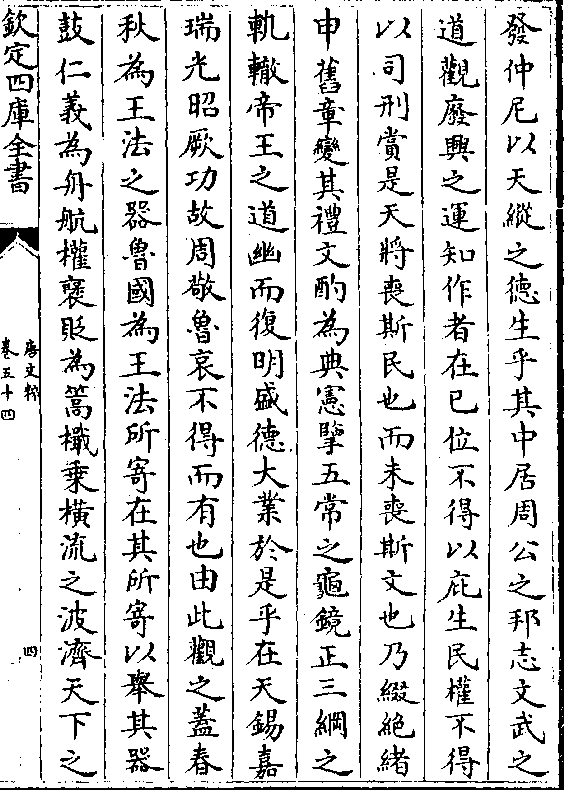 發仲尼以天縱之德生乎其中居周公之邦志文武之
道觀廢興之運知作者在已位不得以庇生民權不得
以司刑賞是天將喪斯民也而未喪斯文也乃綴絶緒
申舊章變其禮文酌為典憲擥五常之龜鏡正三綱之
軌轍帝王之道幽而復明盛德大業於是乎在天錫嘉
瑞光昭厥功故周敬魯哀不得而有也由此觀之蓋春
秋為王法之器魯國為王法所寄在其所寄以舉其器
鼓仁義為舟航權襃貶為篙檝乗横流之波濟天下之
欽定四庫全書
唐文粹
卷五十四
四